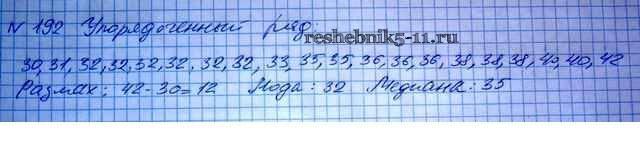 № 192 Упорядоченный ряд:
reshebnik5-11.ru
30, 31, 32, 32, 32, 32, 32, 32, 33, 35, 35, 36, 36, 36, 38, 38, 38, 40, 40, 42
Размах: 42-30=12 Мода: 32 Медиана: 35